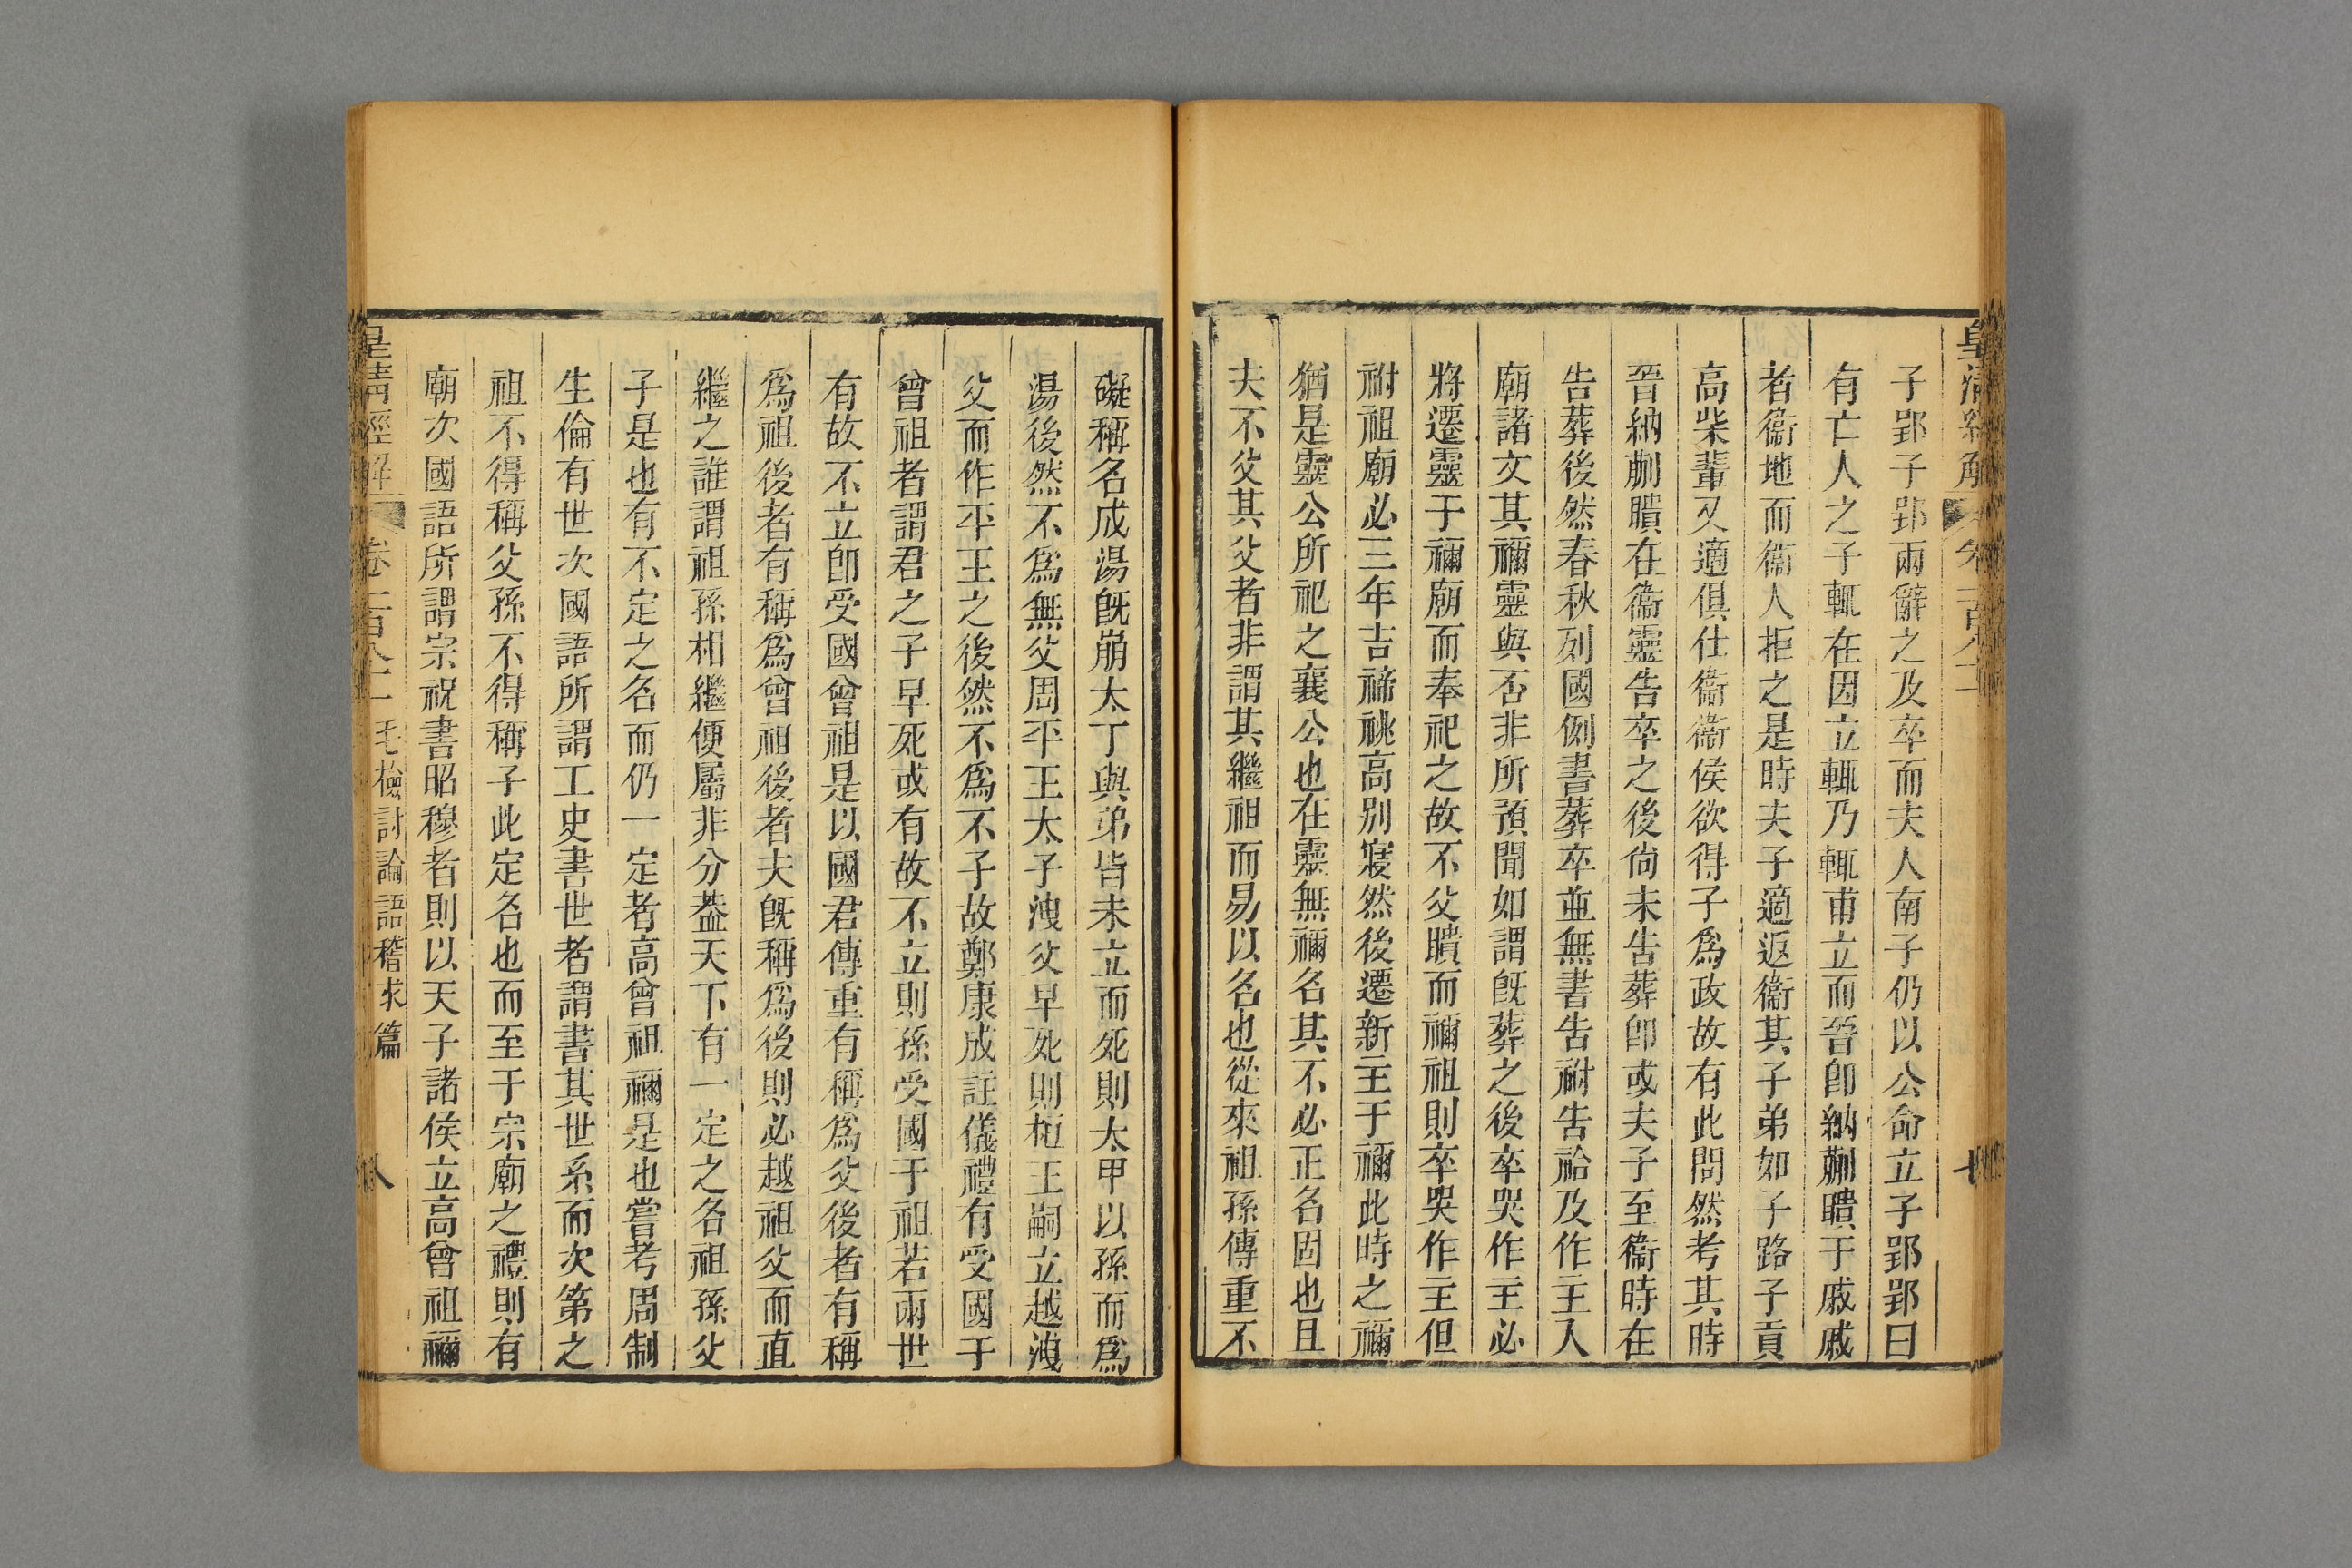 皇清經解 卷一百八十一 七
子郢子郢兩辭之及卒而夫人南子仍以公命立子郢郢曰
有亡人之子輒在因立輒乃輒甫立而晉卽納蒯聵于戚戚
者衞地而衞人拒之是時夫子適返衞其子弟如子路子貢
高柴輩又適俱仕衞衞侯欲得子爲政故有此問然考其時
晉納蒯聵在衞靈告卒之後尙未告葬卽或夫子至衞時在
告葬後然春秋列國例書葬卒並無書告祔告祫及作主入
廟諸文其禰靈與否非所預聞如謂旣葬之後卒哭作主必
將遷靈于禰廟而奉祀之故不父聵而禰祖則卒哭作主但
祔祖廟必三年吉禘祧高別寢然後遷新主于禰此時之禰
猶是靈公所祀之襄公也在靈無禰名其不必正名固也且
夫不父其父者非謂其繼祖而易以名也從來祖孫傳重不
礙稱名成湯旣崩太丁與弟皆未立而死則太甲以孫而爲
湯後然不爲無父周平王太子洩父早死則桓王嗣立越洩
父而作平王之後然不爲不子故鄭康成註儀禮有受國于
曾祖者謂君之子早死或有故不立則孫受國于祖若兩世
有故不立卽受國曾祖是以國君傳重有稱爲父後者有稱
爲祖後者有稱爲曾祖後者夫旣稱爲後則必越祖父而直
繼之誰謂祖孫相繼便屬非分葢天下有一定之名祖孫父
子是也有不定之名而仍一定者高曾祖禰是也嘗考周制
生倫有世次國語所謂工史書世者謂書其世系而次第之
祖不得稱父孫不得稱子此定名也而至于宗廟之禮則有
廟次國語所謂宗祝書昭穆者則以天子諸侯立高曾祖禰
皇清經解 卷一百八十二 毛檢討論語稽求篇 八